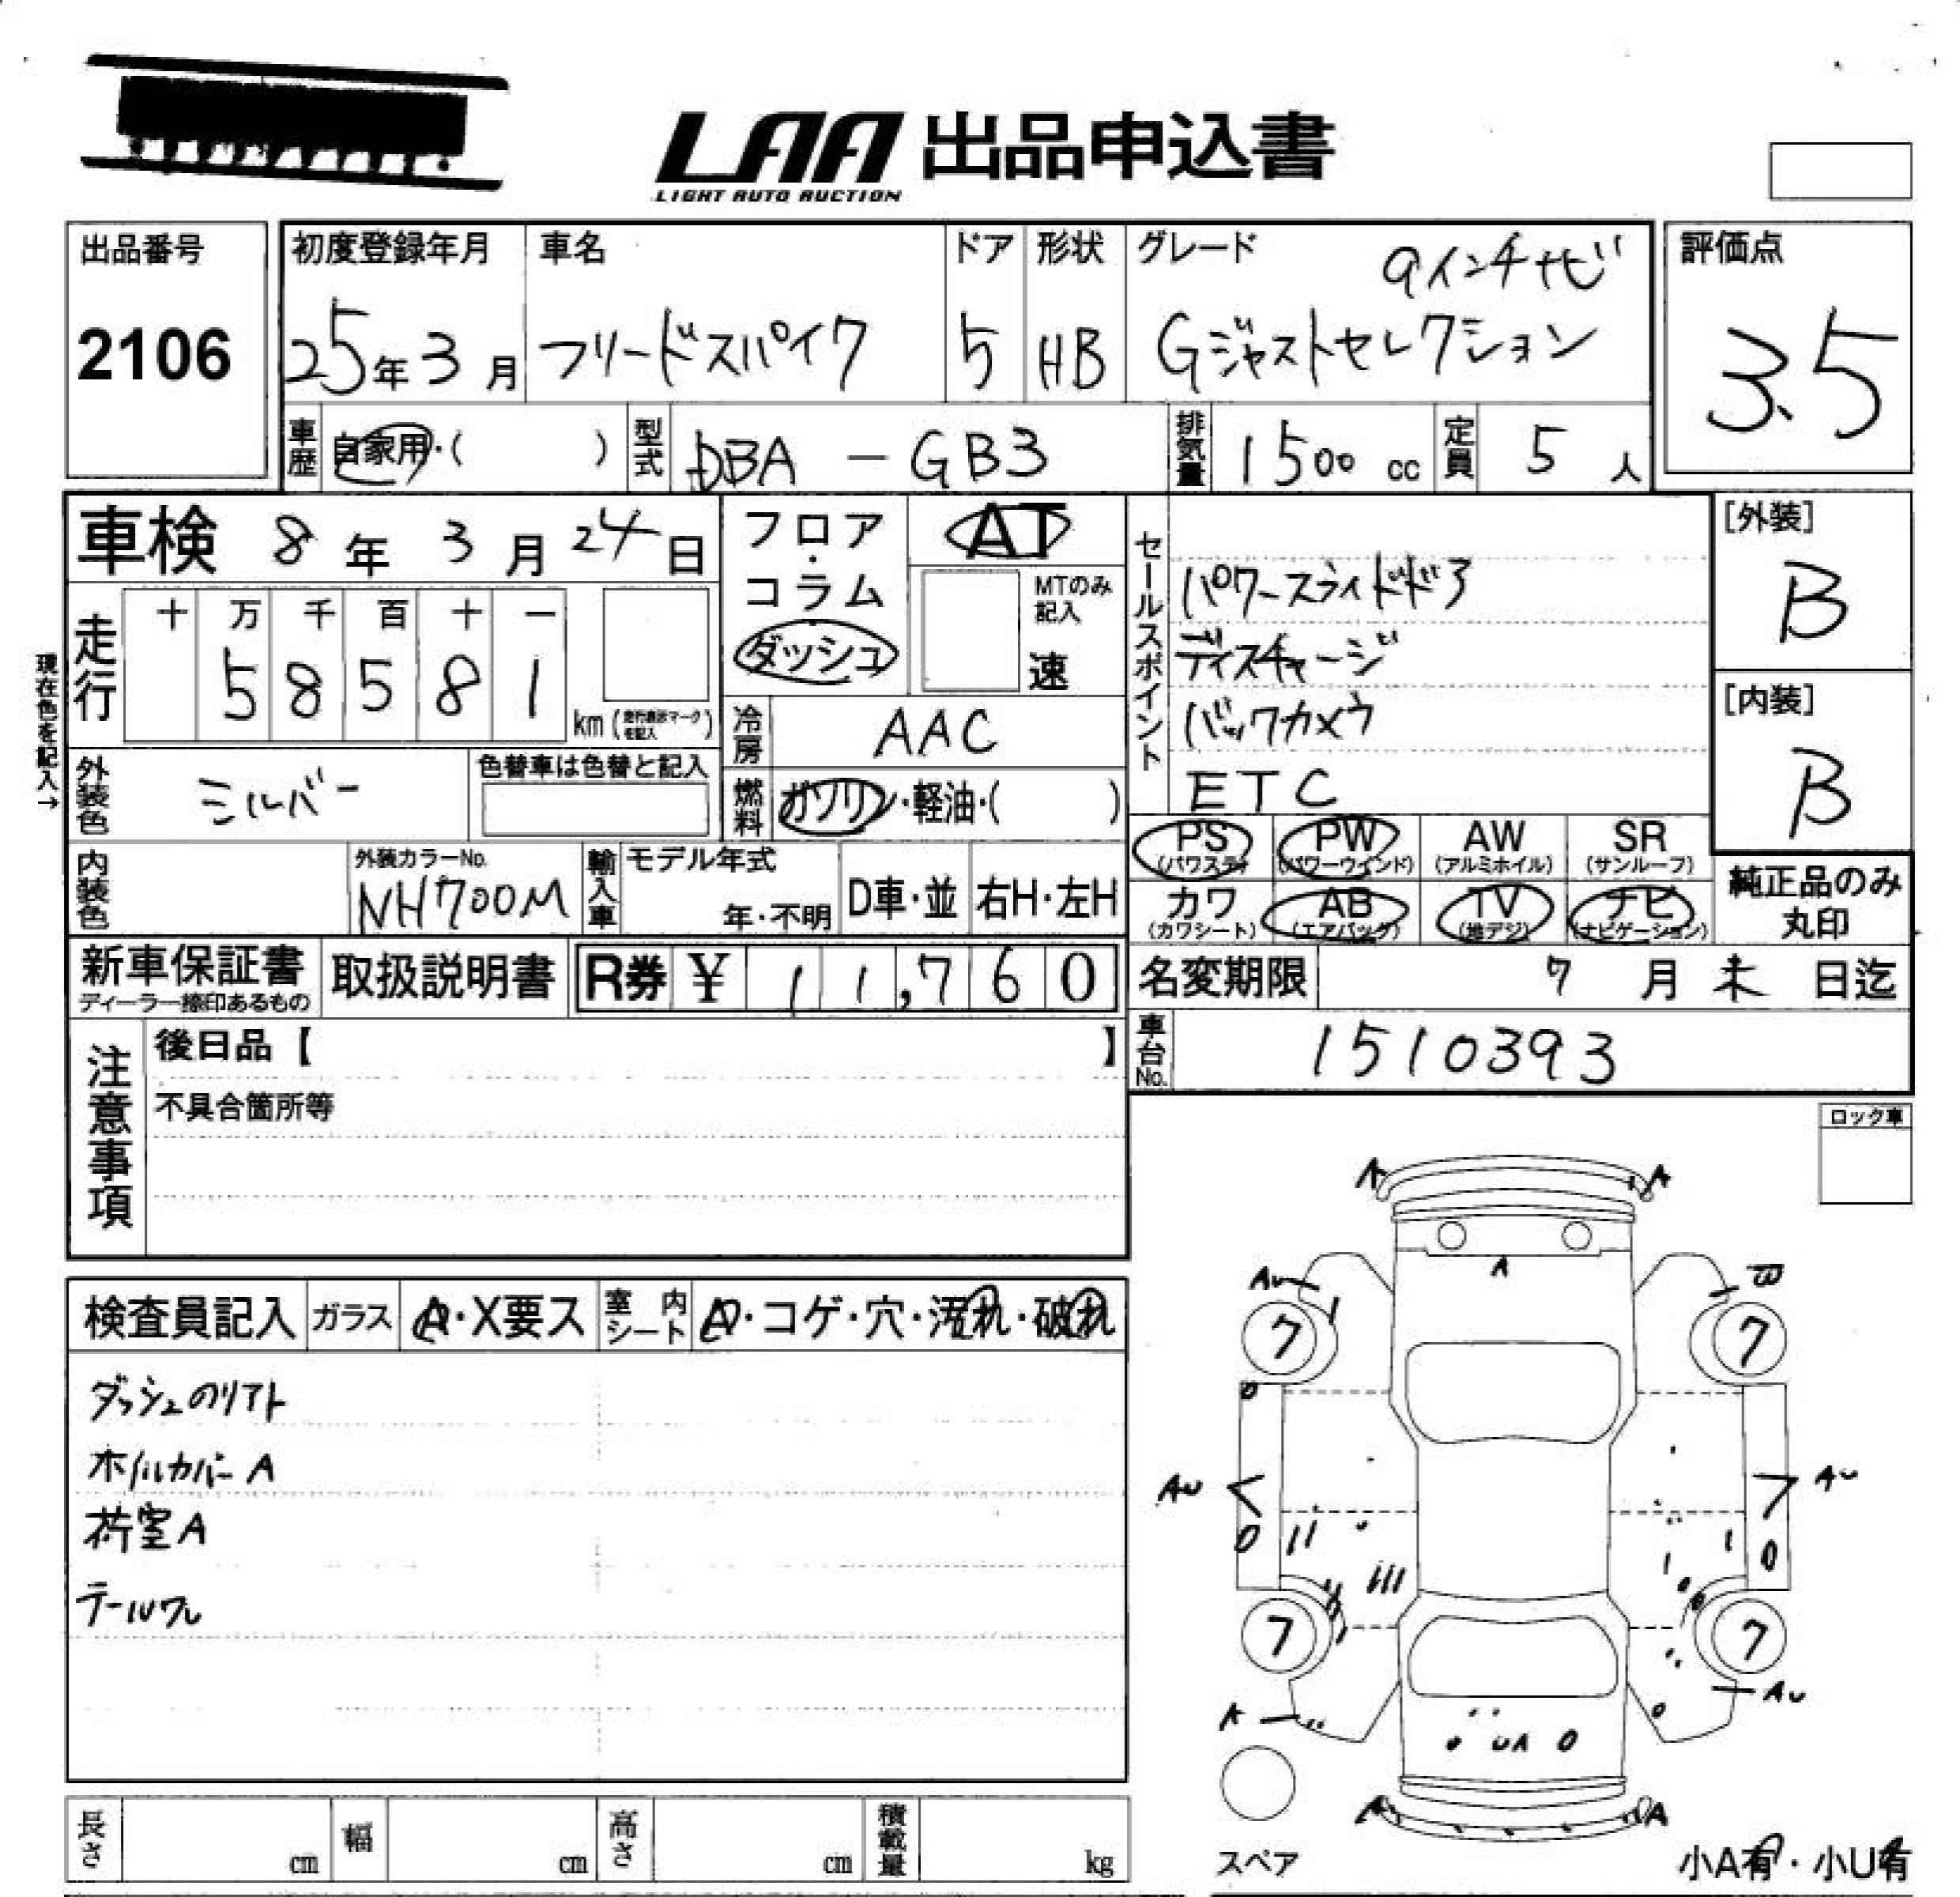 LAA 出品申込書
LIGHT AUTO AUCTION
出品番号
2106
初度登録年月
25年3月
車名
フリードスパイク
ドア
5
形状
HB
グレード
9インチナビ
Gジャストセレクション
評価点
3.5
車歴
自家用・( )
型式
DBA - GB3
排気量
1500 cc
定員
5 人
車検 8年 3月 24日
フロア・コラム
ダッシュ
AT
MTのみ記入
速
セールスポイント
パワースライドドア
ディスチャージ
バックカメラ
ETC
[外装]
B
[内装]
B
現在色を記入→
走行
十 万 千 百 十 一
5 8 5 8 1
km (走行表示マークを記入)
冷房
AAC
外装色
シルバー
色替車は色替と記入
燃料
ガソリン・軽油・( )
PS (パワステ)
PW (パワーウインド)
AW (アルミホイル)
SR (サンルーフ)
カワ (カワシート)
AB (エアバック)
TV (地デジ)
ナビ (ナビゲーション)
純正品のみ丸印
内装色
外装カラーNo.
NH700M
輸入車
モデル年式
年・不明
D車・並
右H・左H
新車保証書
ディーラー捺印あるもの
取扱説明書
R券 ¥ 11,760
名変期限 7月末日迄
車台No.
1510393
注意事項
後日品【 】
不具合箇所等
ロック車
検査員記入
ガラス
A・X要ス
室内シート
A・コゲ・穴・汚れ・破れ
ダッシュのリアト
ホイルカバーA
荷室A
テールワレ
A A
A
AU B
7 7
AU AU
7 7
A AU
UA
A A
スペア
小A有・小U有
長さ cm
幅 cm
高さ cm
積載量 kg